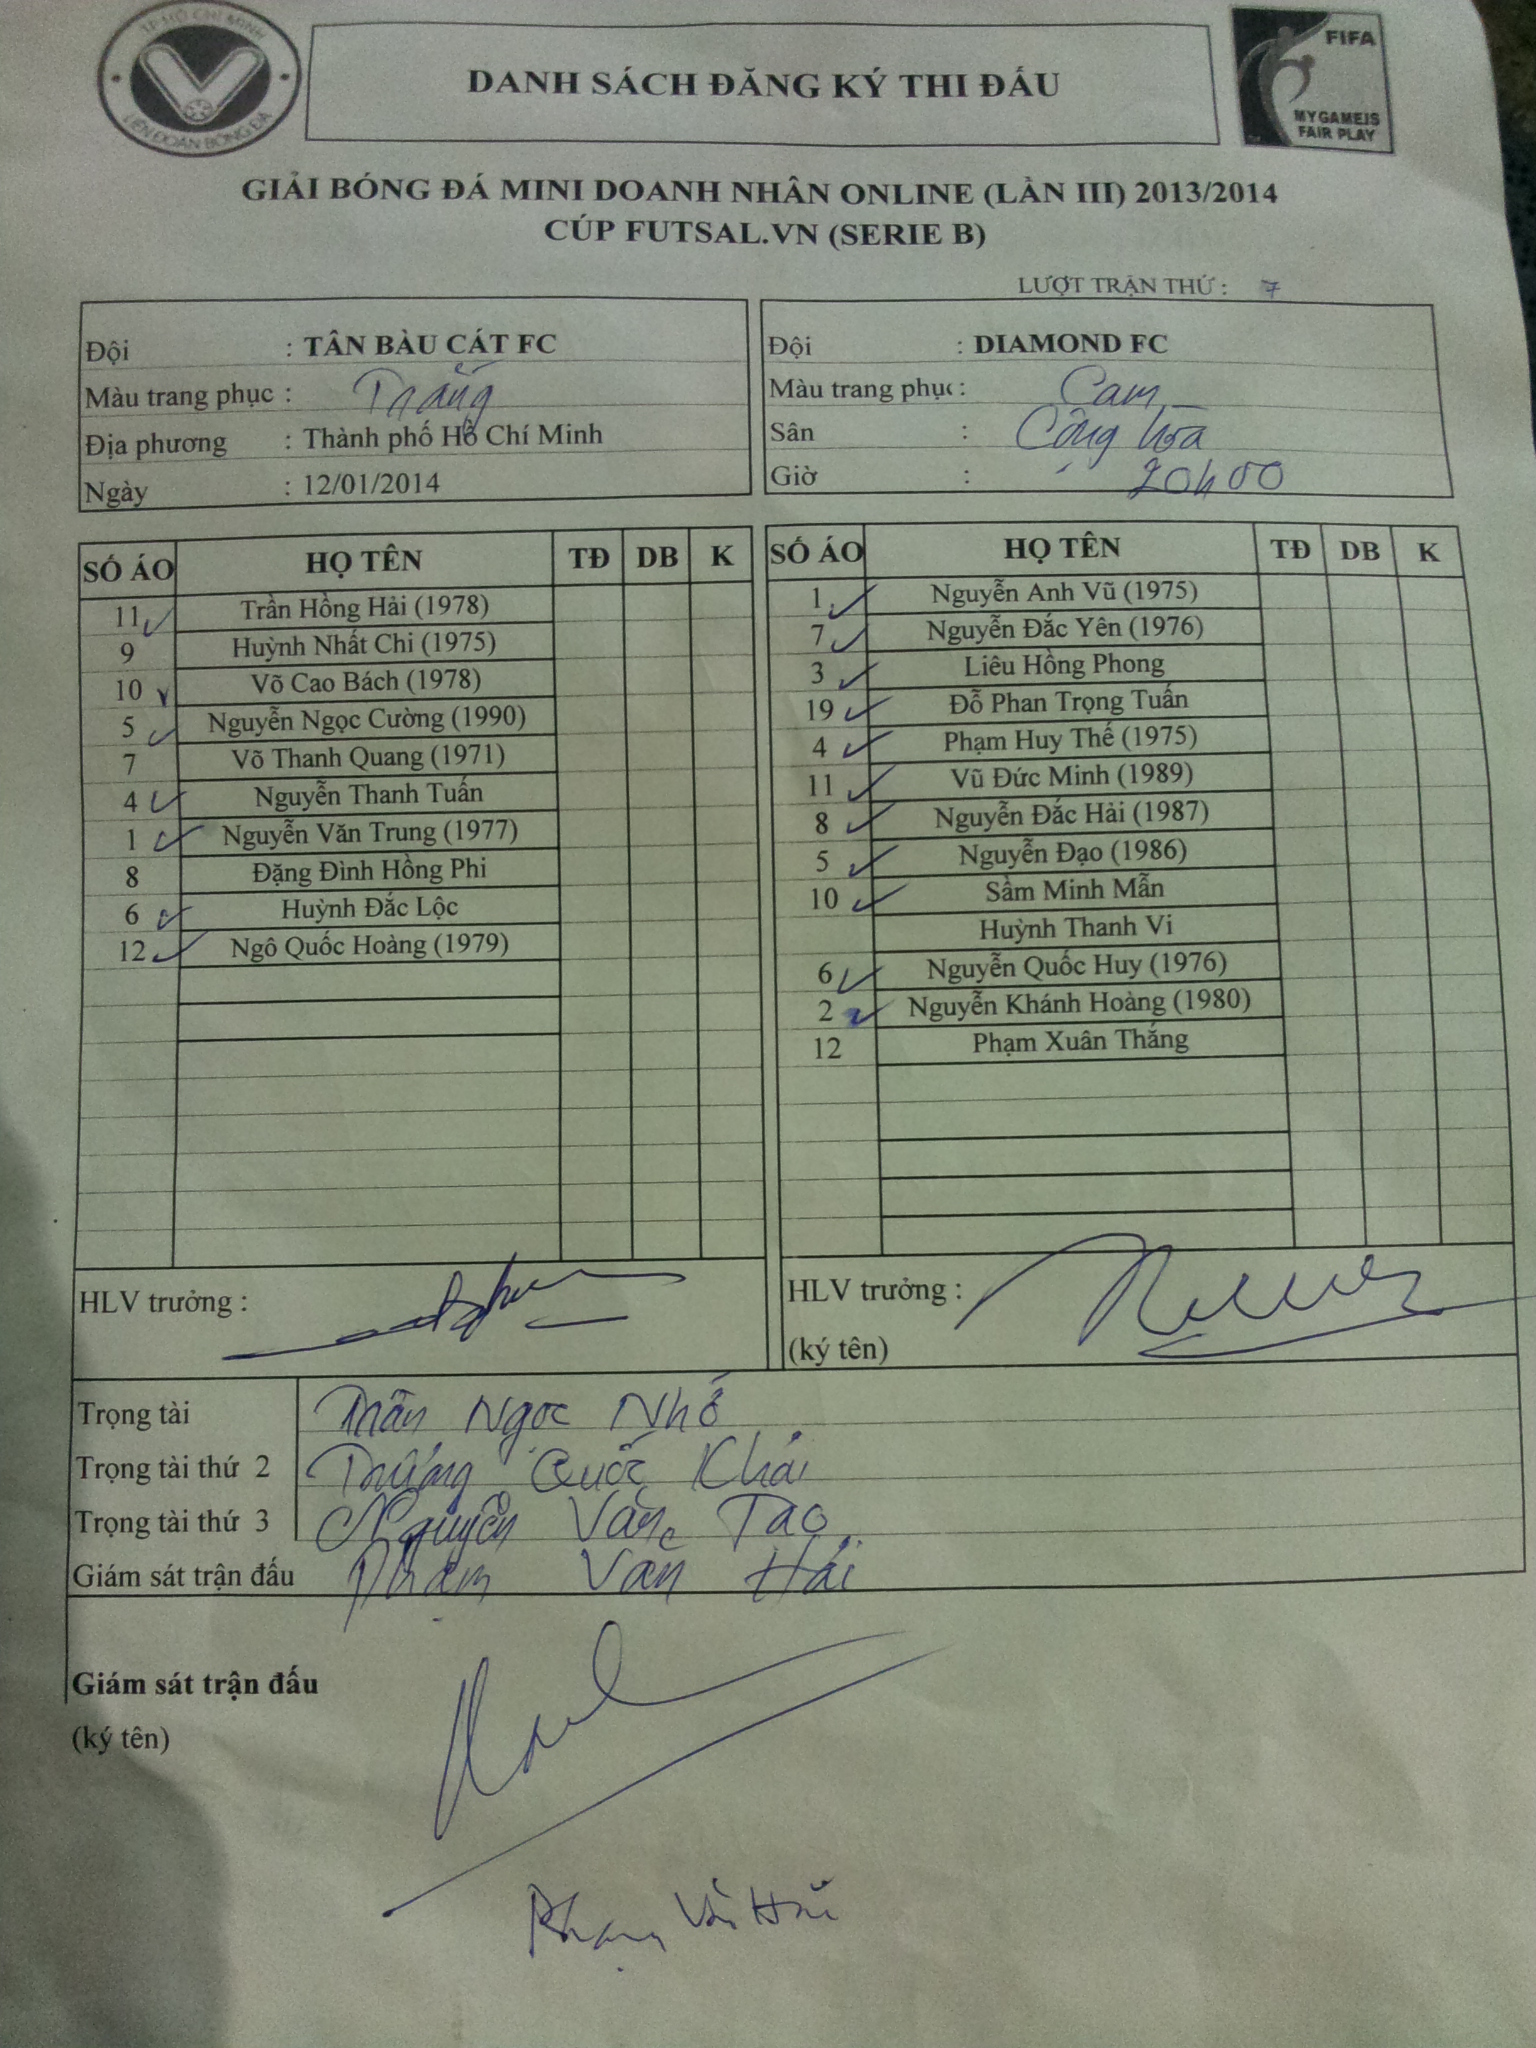 TP HỒ CHÍ MINH
LIÊN ĐOÀN BÓNG ĐÁ
DANH SÁCH ĐĂNG KÝ THI ĐẤU
FIFA
MY GAME IS
FAIR PLAY
GIẢI BÓNG ĐÁ MINI DOANH NHÂN ONLINE (LẦN III) 2013/2014
CÚP FUTSAL.VN (SERIE B)
LƯỢT TRẬN THỨ : 7
Đội : TÂN BÀU CÁT FC
Màu trang phục : Trắng
Địa phương : Thành phố Hồ Chí Minh
Ngày : 12/01/2014
Đội : DIAMOND FC
Màu trang phục : Cam
Sân : Cộng hòa
Giờ : 20h00
SỐ ÁO HỌ TÊN TĐ DB K
11 Trần Hồng Hải (1978)
9 Huỳnh Nhất Chi (1975)
10 Võ Cao Bách (1978)
5 Nguyễn Ngọc Cường (1990)
7 Võ Thanh Quang (1971)
4 Nguyễn Thanh Tuấn
1 Nguyễn Văn Trung (1977)
8 Đặng Đình Hồng Phi
6 Huỳnh Đắc Lộc
12 Ngô Quốc Hoàng (1979)
SỐ ÁO HỌ TÊN TĐ DB K
1 Nguyễn Anh Vũ (1975)
7 Nguyễn Đắc Yên (1976)
3 Liêu Hồng Phong
19 Đỗ Phan Trọng Tuấn
4 Phạm Huy Thế (1975)
11 Vũ Đức Minh (1989)
8 Nguyễn Đắc Hải (1987)
5 Nguyễn Đạo (1986)
10 Sầm Minh Mẫn
Huỳnh Thanh Vi
6 Nguyễn Quốc Huy (1976)
2 Nguyễn Khánh Hoàng (1980)
12 Phạm Xuân Thắng
HLV trưởng :
HLV trưởng :
(ký tên)
Trọng tài Trần Ngọc Nhớ
Trọng tài thứ 2 Trương Quốc Khái
Trọng tài thứ 3 Nguyễn Văn Tạo
Giám sát trận đấu Phạm Văn Hải
Giám sát trận đấu
(ký tên)
Phạm Văn Hải